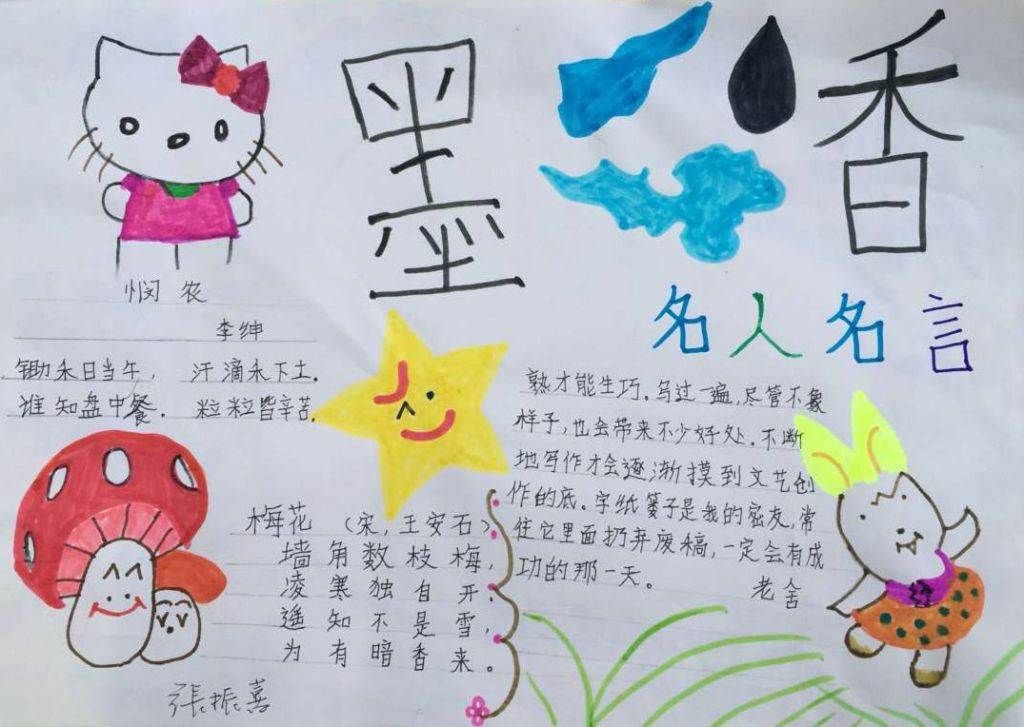 墨香
悯农
李绅
锄禾日当午，汗滴禾下土。
谁知盘中餐．粒粒皆辛苦．
梅花（宋，王安石）
墙角数枝梅，
凌寒独自开．
遥知不是雪，
为有暗香来。
張振喜
名人名言
熟才能生巧．写过一遍，尽管不象
样子，也会带来不少好处．不断
地写作才会逐渐摸到文艺创
作的底。字纸篓子是我的密友，常
往它里面扔弃废稿，一定会有成
功的那一天。
老舍